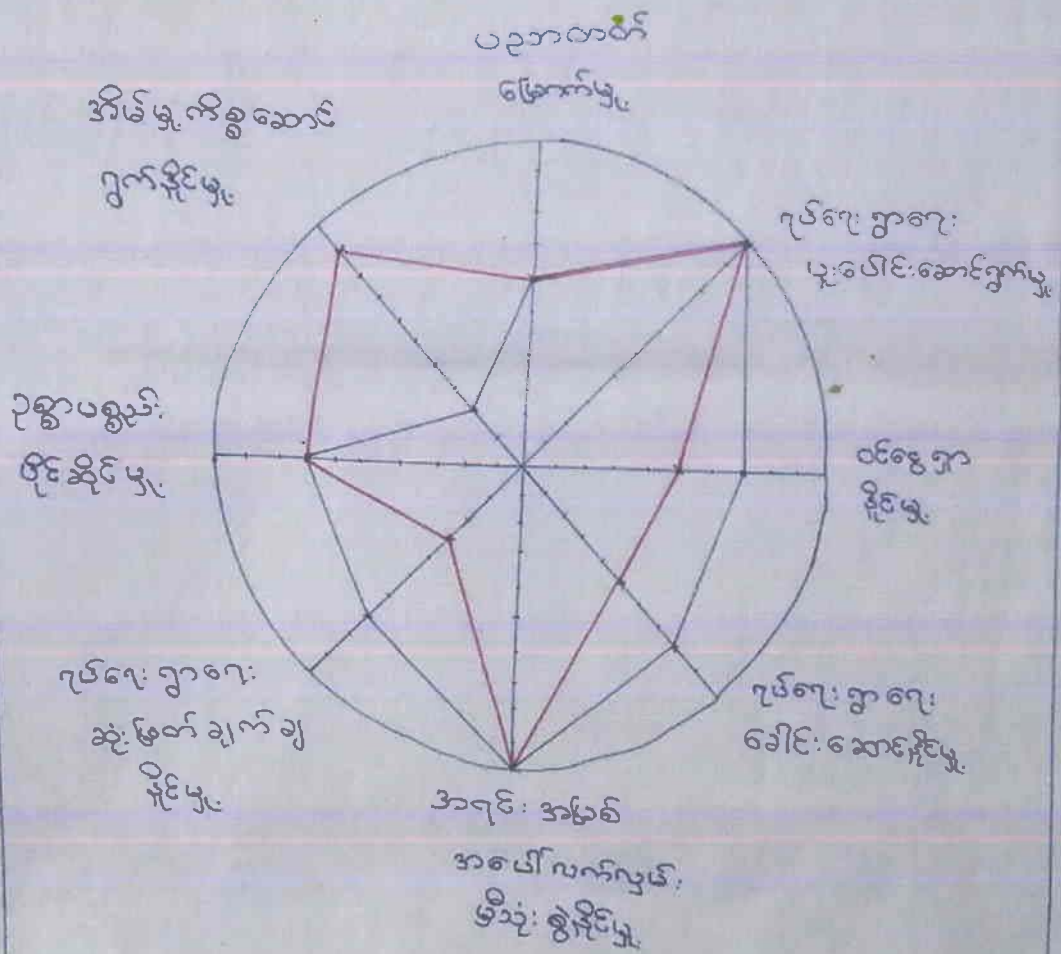 ပဥာဘတတ်
မြောက်မှု
အိမ်မှု ကိစ္စ ဆောင်
ရွက်နိုင်မှု
ရပ်ရေး ရွာရေး
ပူးပေါင်းဆောင်ရွက်မှု
ဥစ္စာပစ္စည်း
ပိုင်ဆိုင်မှု
ဝင်ငွေ ရှာ
နိုင်မှု
ရပ်ရေး ရွာရေး
ဆုံးဖြတ် ချက် ချ
နိုင်မှု
ရပ်ရေး ရွာရေး
ခေါင်းဆောင်နိုင်မှု
အရင်း အမြစ်
အပေါ် လက်လှမ်း
မီသုံး စွဲနိုင်မှု